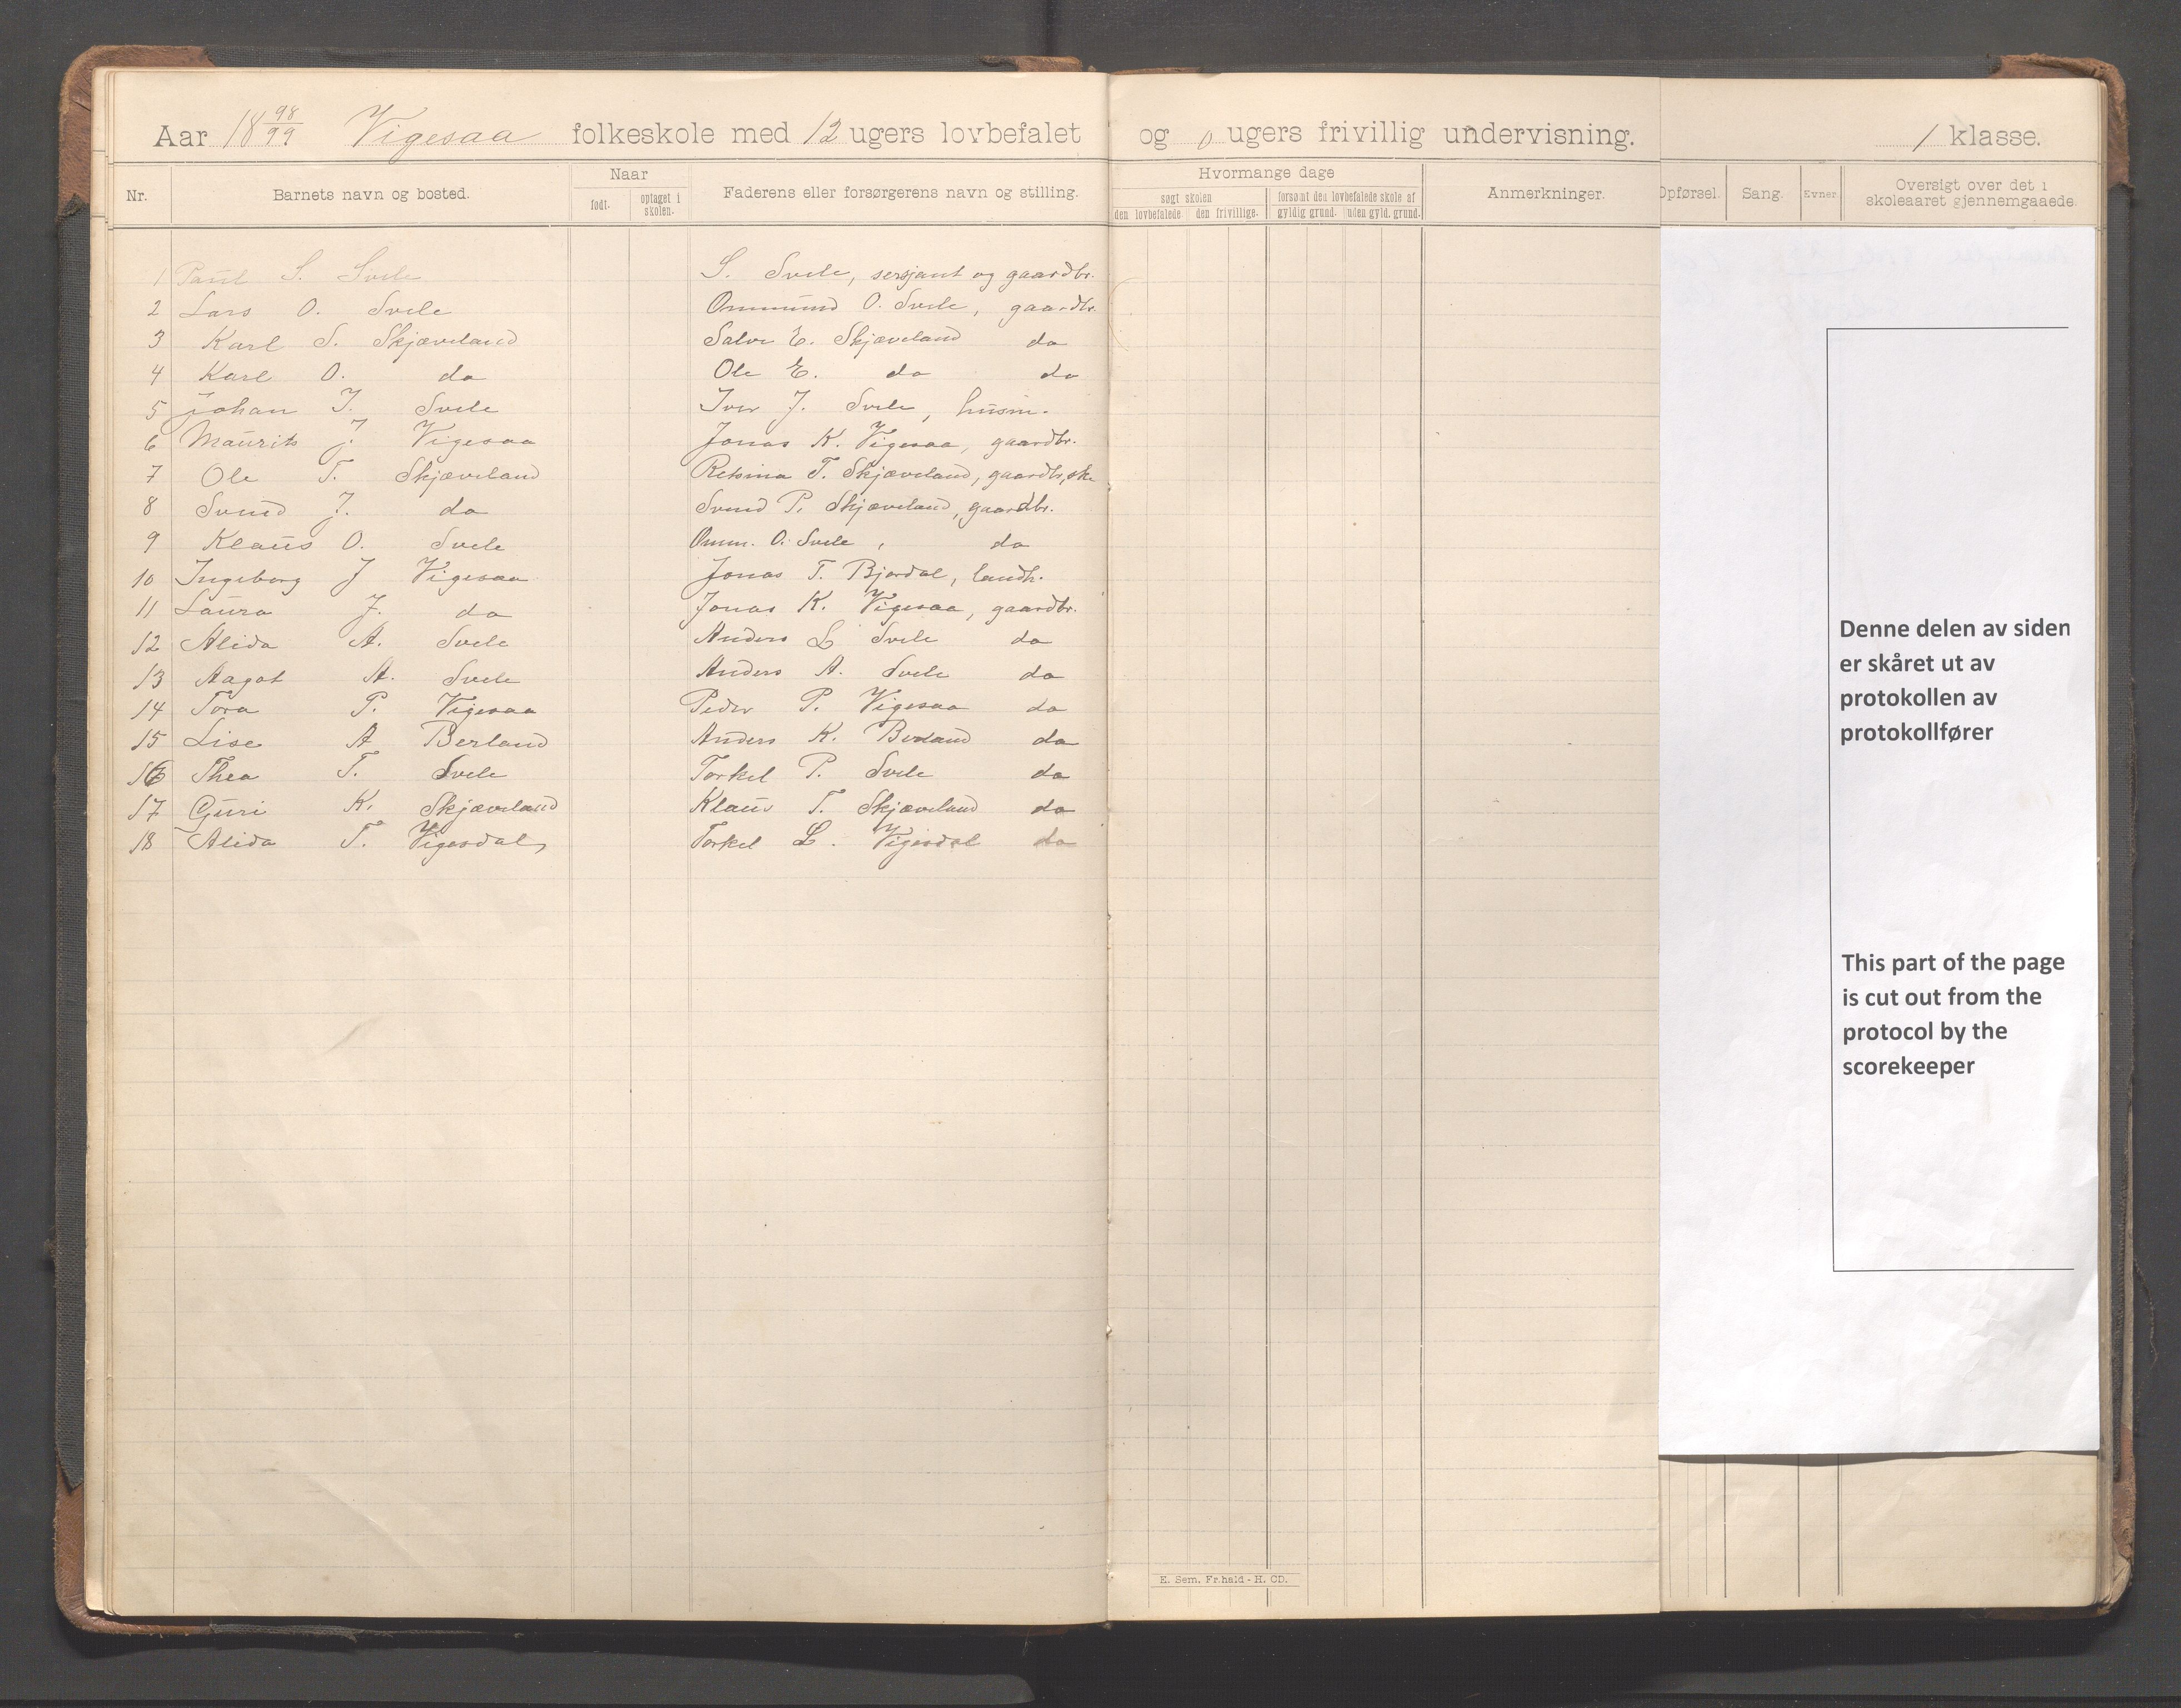 Aar 18 98/99 Vigesaa folkeskole med 12 ugers lovbefalet og 0 ugers frivillig undervisning. 1 klasse.
Nr. Barnets navn og bosted. Naar født. optaget i skolen. Faderens eller forsørgerens navn og stilling. Hvormange dage søgt skolen den lovbefalede den frivillige. forsømt den lovbefalede skole af gyldig grund. uden gyld. grund. Anmerkninger. Opførsel. Sang. Evner Oversigt over det i skoleaaret gjennemgaaede.
1 Paul S. Svele S. Svele, sersjant og gaardbr.
2 Lars O. Svele Ommund O. Svele, gaardbr.
3 Karl S. Skjæveland Salve E. Skjæveland do
4 Karl O. do Ole E. do do
5 Johan I. Svele Iver J. Svele, husm.
6 Maurits J. Vigesaa Jonas K. Vigesaa, gaardbr.
7 Ole T. Skjæveland Retsina T. Skjæveland, gaardbr.ske
8 Svend J. do Svend P. Skjæveland, gaardbr.
9 Klaus O. Svele Omm. O. Svele, do
10 Ingeborg J Vigesaa Jonas T. Bjordal, landh.
11 Laura J. do Jonas K. Vigesaa, gaardbr.
12 Alida A. Svele Anders L Svele do
13 Aagot A. Svele Anders A. Svele do
14 Tora P. Vigesaa Peder P. Vigesaa do
15 Lise A Berland Anders K. Berland do
16 Thea T. Svele Torkel P. Svele do
17 Guri K. Skjæveland Klaus T. Skjæveland do
18 Alida T. Vigesdal, Torkel L. Vigesdal do
Denne delen av siden
er skåret ut av
protokollen av
protokollfører
This part of the page
is cut out from the
protocol by the
scorekeeper
E. Sem. Fr.hald - H. CD.